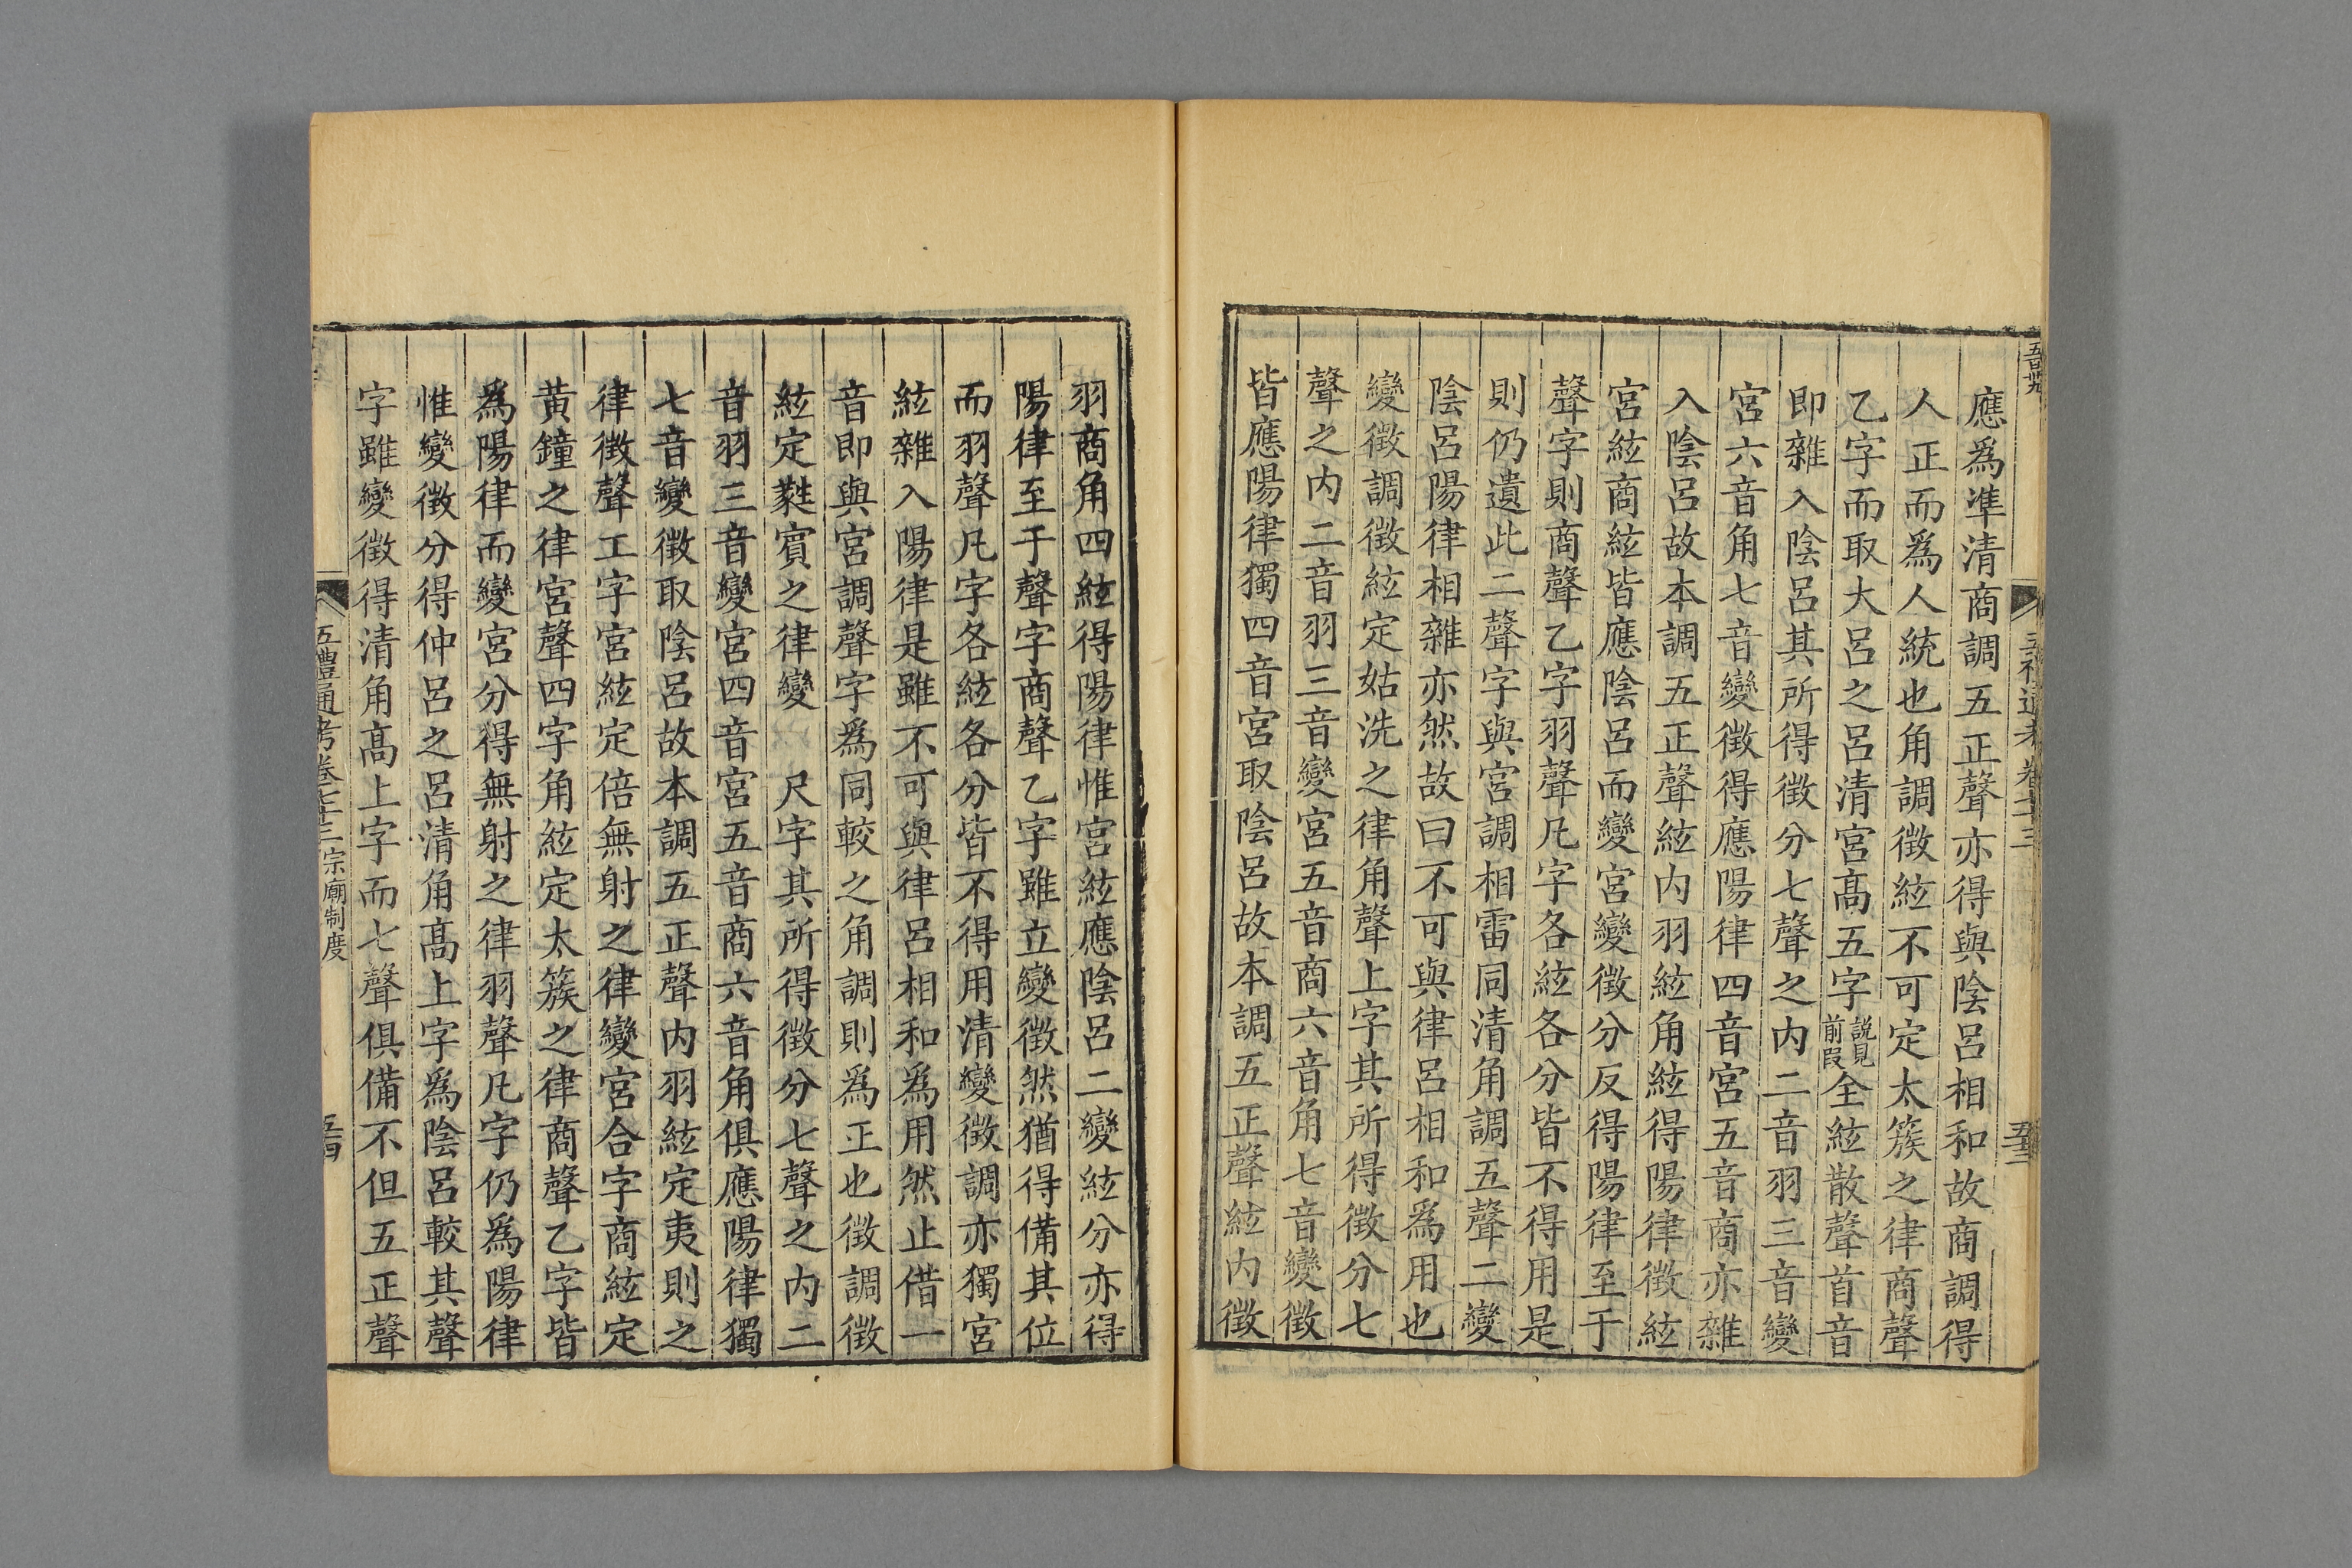 應爲準清商調五正聲亦得與陰呂相和故商調得
人正而爲人統也角調徵絃不可定太簇之律商聲
乙字而取大呂之呂清宮高五字說見前叚全絃散聲首音
即雜入陰呂其所得徵分七聲之内二音羽三音變
宮六音角七音變徵得應陽律四音宮五音商亦雜
入陰呂故本調五正聲絃内羽絃角絃得陽律徵絃
宮絃商絃皆應陰呂而變宮變徵分反得陽律至于
聲字則商聲乙字羽聲凡字各絃各分皆不得用是
則仍遺此二聲字與宮調相雷同清角調五聲二變
陰呂陽律相雜亦然故曰不可與律呂相和爲用也
變徵調徵絃定姑洗之律角聲上字其所得徵分七
聲之内二音羽三音變宮五音商六音角七音變徵
皆應陽律獨四音宮取陰呂故本調五正聲絃内徵
羽商角四絃得陽律惟宮絃應陰呂二變絃分亦得
陽律至于聲字商聲乙字雖立變徵然猶得備其位
而羽聲凡字各絃各分皆不得用清變徵調亦獨宮
絃雜入陽律是雖不可與律呂相和爲用然止借一
音即與宮調聲字爲同較之角調則爲正也徵調徵
絃定蕤賓之律變　尺字其所得徵分七聲之内二
音羽三音變宮四音宮五音商六音角俱應陽律獨
七音變徵取陰呂故本調五正聲内羽絃定夷則之
律徵聲工字宮絃定倍無射之律變宮合字商絃定
黃鐘之律宮聲四字角絃定太簇之律商聲乙字皆
爲陽律而變宮分得無射之律羽聲凡字仍爲陽律
惟變徵分得仲呂之呂清角高上字爲陰呂較其聲
字雖變徵得清角高上字而七聲俱備不但五正聲
五禮通考卷七十三 宗廟制度
五十四